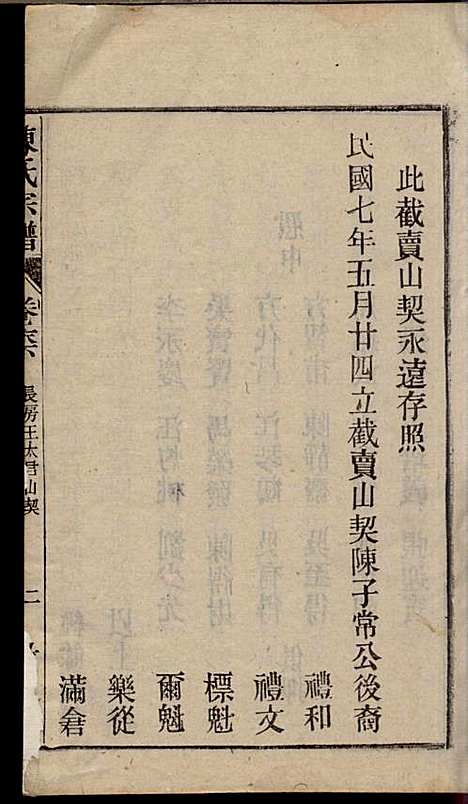 此截賣山契永遠存照
民國七年五月廿四立截賣山契陳子常公後裔
禮和
禮文
標魁
爾魁
樂從
滿倉
陳氏宗譜
卷六
長房王太君山契
二